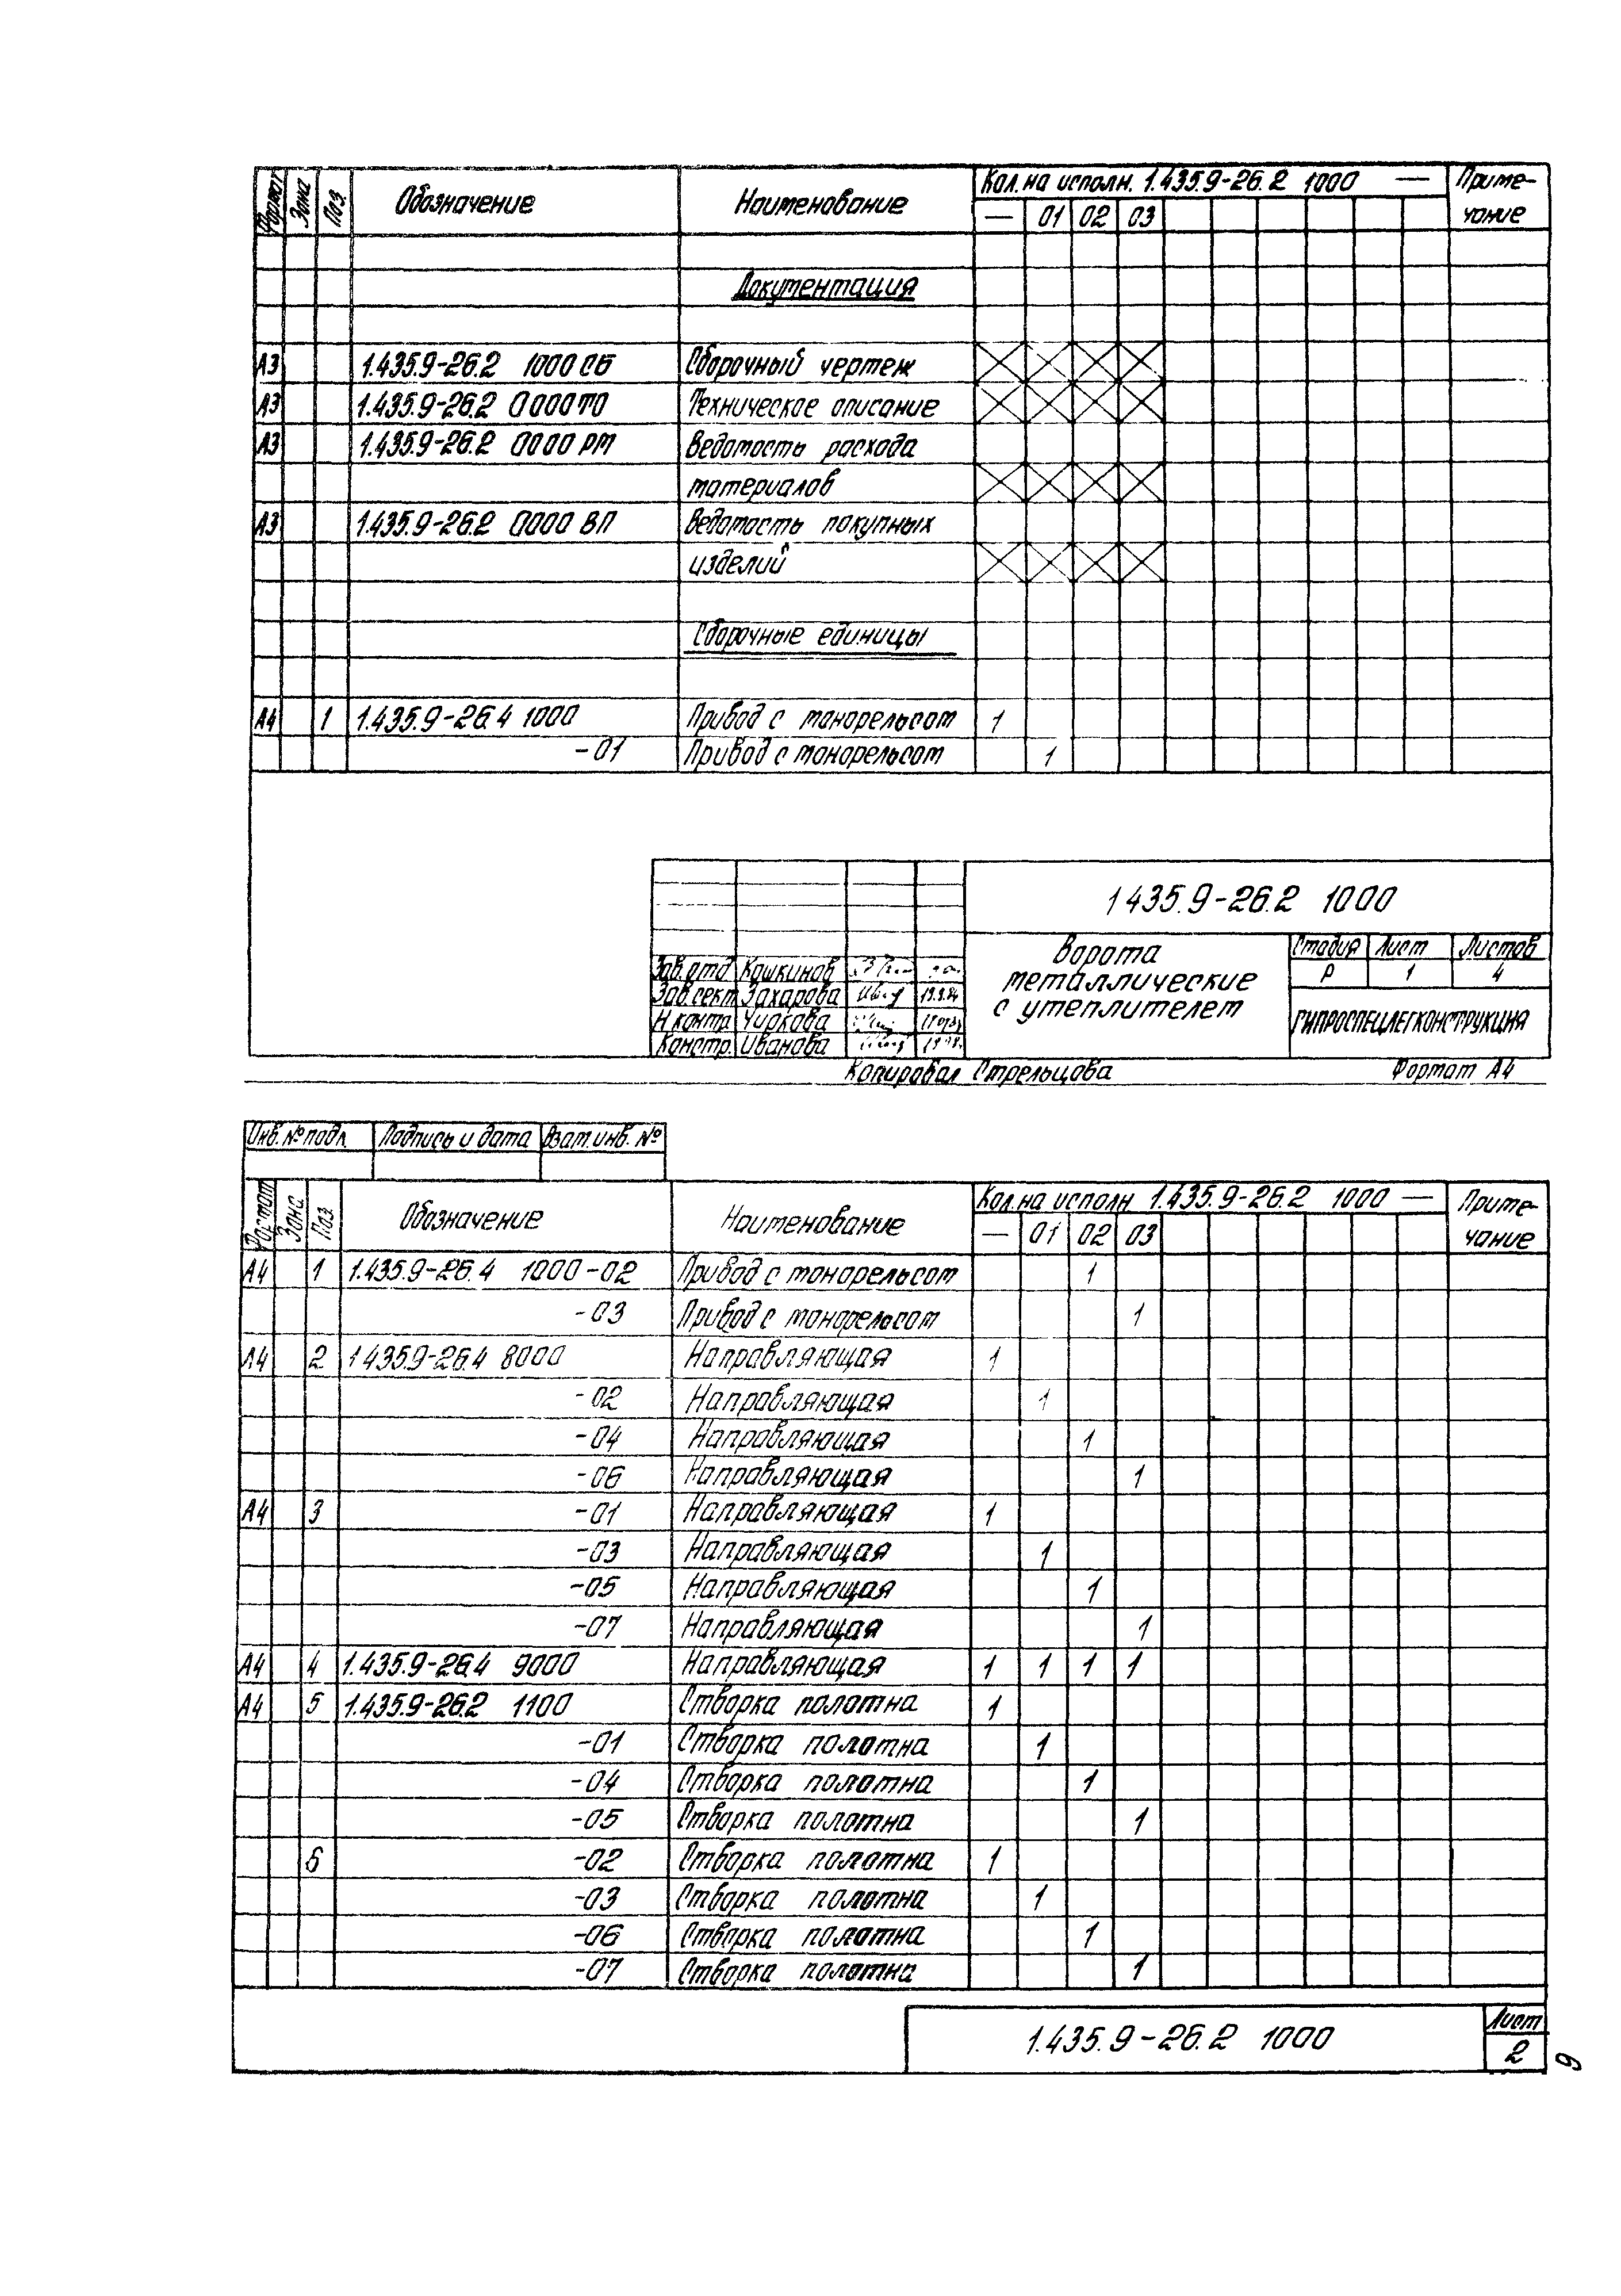 Формат Зона Поз. Обозначение Наименование Кол. на исполн. 1.435.9-26.2 1000 — Приме-
— 01 02 03 чание
Документация
А3 1.435.9-26.2 1000 СБ Сборочный чертеж
А3 1.435.9-26.2 0000ТО Техническое описание
А3 1.435.9-26.2 0000 РМ Ведомость расхода
материалов
А3 1.435.9-26.2 0000 ВП Ведомость покупных
изделий
Сборочные единицы
А4 1 1.435.9-26.4 1000 Привод с монорельсом 1
-01 Привод с монорельсом 1
1 435.9-26.2 1000
Ворота
металлические
с утеплителем
Стадия Лист Листов
Р 1 4
ГИПРОСПЕЦЛЕГКОНСТРУКЦИЯ
Зав. отд Кошкинов
Зав. сект. Захарова 19.9.84
Н. контр Чиркова
Констр. Иванова
Копировал Стрельцова Формат А4
Инв. № подл. Подпись и дата Взам. инв. №
Формат Зона Поз. Обозначение Наименование Кол. на исполн 1.435.9-26.2 1000 — Приме-
— 01 02 03 чание
А4 1 1.435.9-26.4 1000-02 Привод с монорельсом 1
-03 Привод с монорельсом 1
А4 2 1 435.9-26.4 8000 Направляющая 1
-02 Направляющая 1
-04 Направляющая 1
-06 Направляющая 1
А4 3 -01 Направляющая 1
-03 Направляющая 1
-05 Направляющая 1
-07 Направляющая 1
А4 4 1.435.9-26.4 9000 Направляющая 1 1 1 1
А4 5 1.435.9-26.2 1100 Створка полотна 1
-01 Створка полотна 1
-04 Створка полотна 1
-05 Створка полотна 1
6 -02 Створка полотна 1
-03 Створка полотна 1
-06 Створка полотна 1
-07 Створка полотна 1
1.435.9-26.2 1000
Лист
2
9